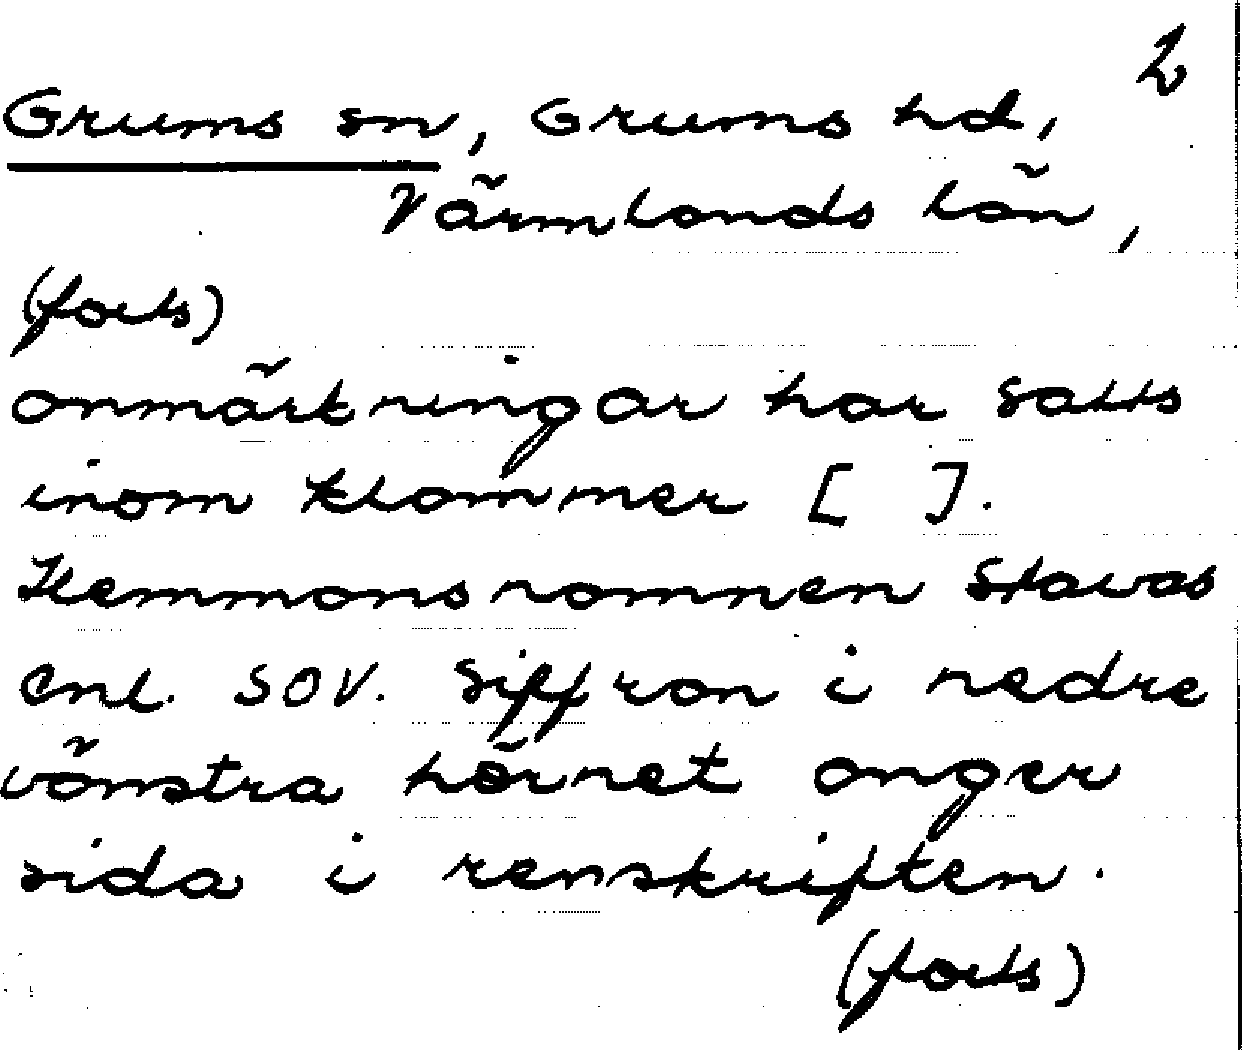 2
Grums sn, Grums hd,
Värmlands län,
(forts)
anmärkningar har satts
inom klammer [ ].
Hemmansnamnen stavas
enl. SOV. Siffran i nedre
vänstra hörnet anger
sida i renskriften.
(forts)